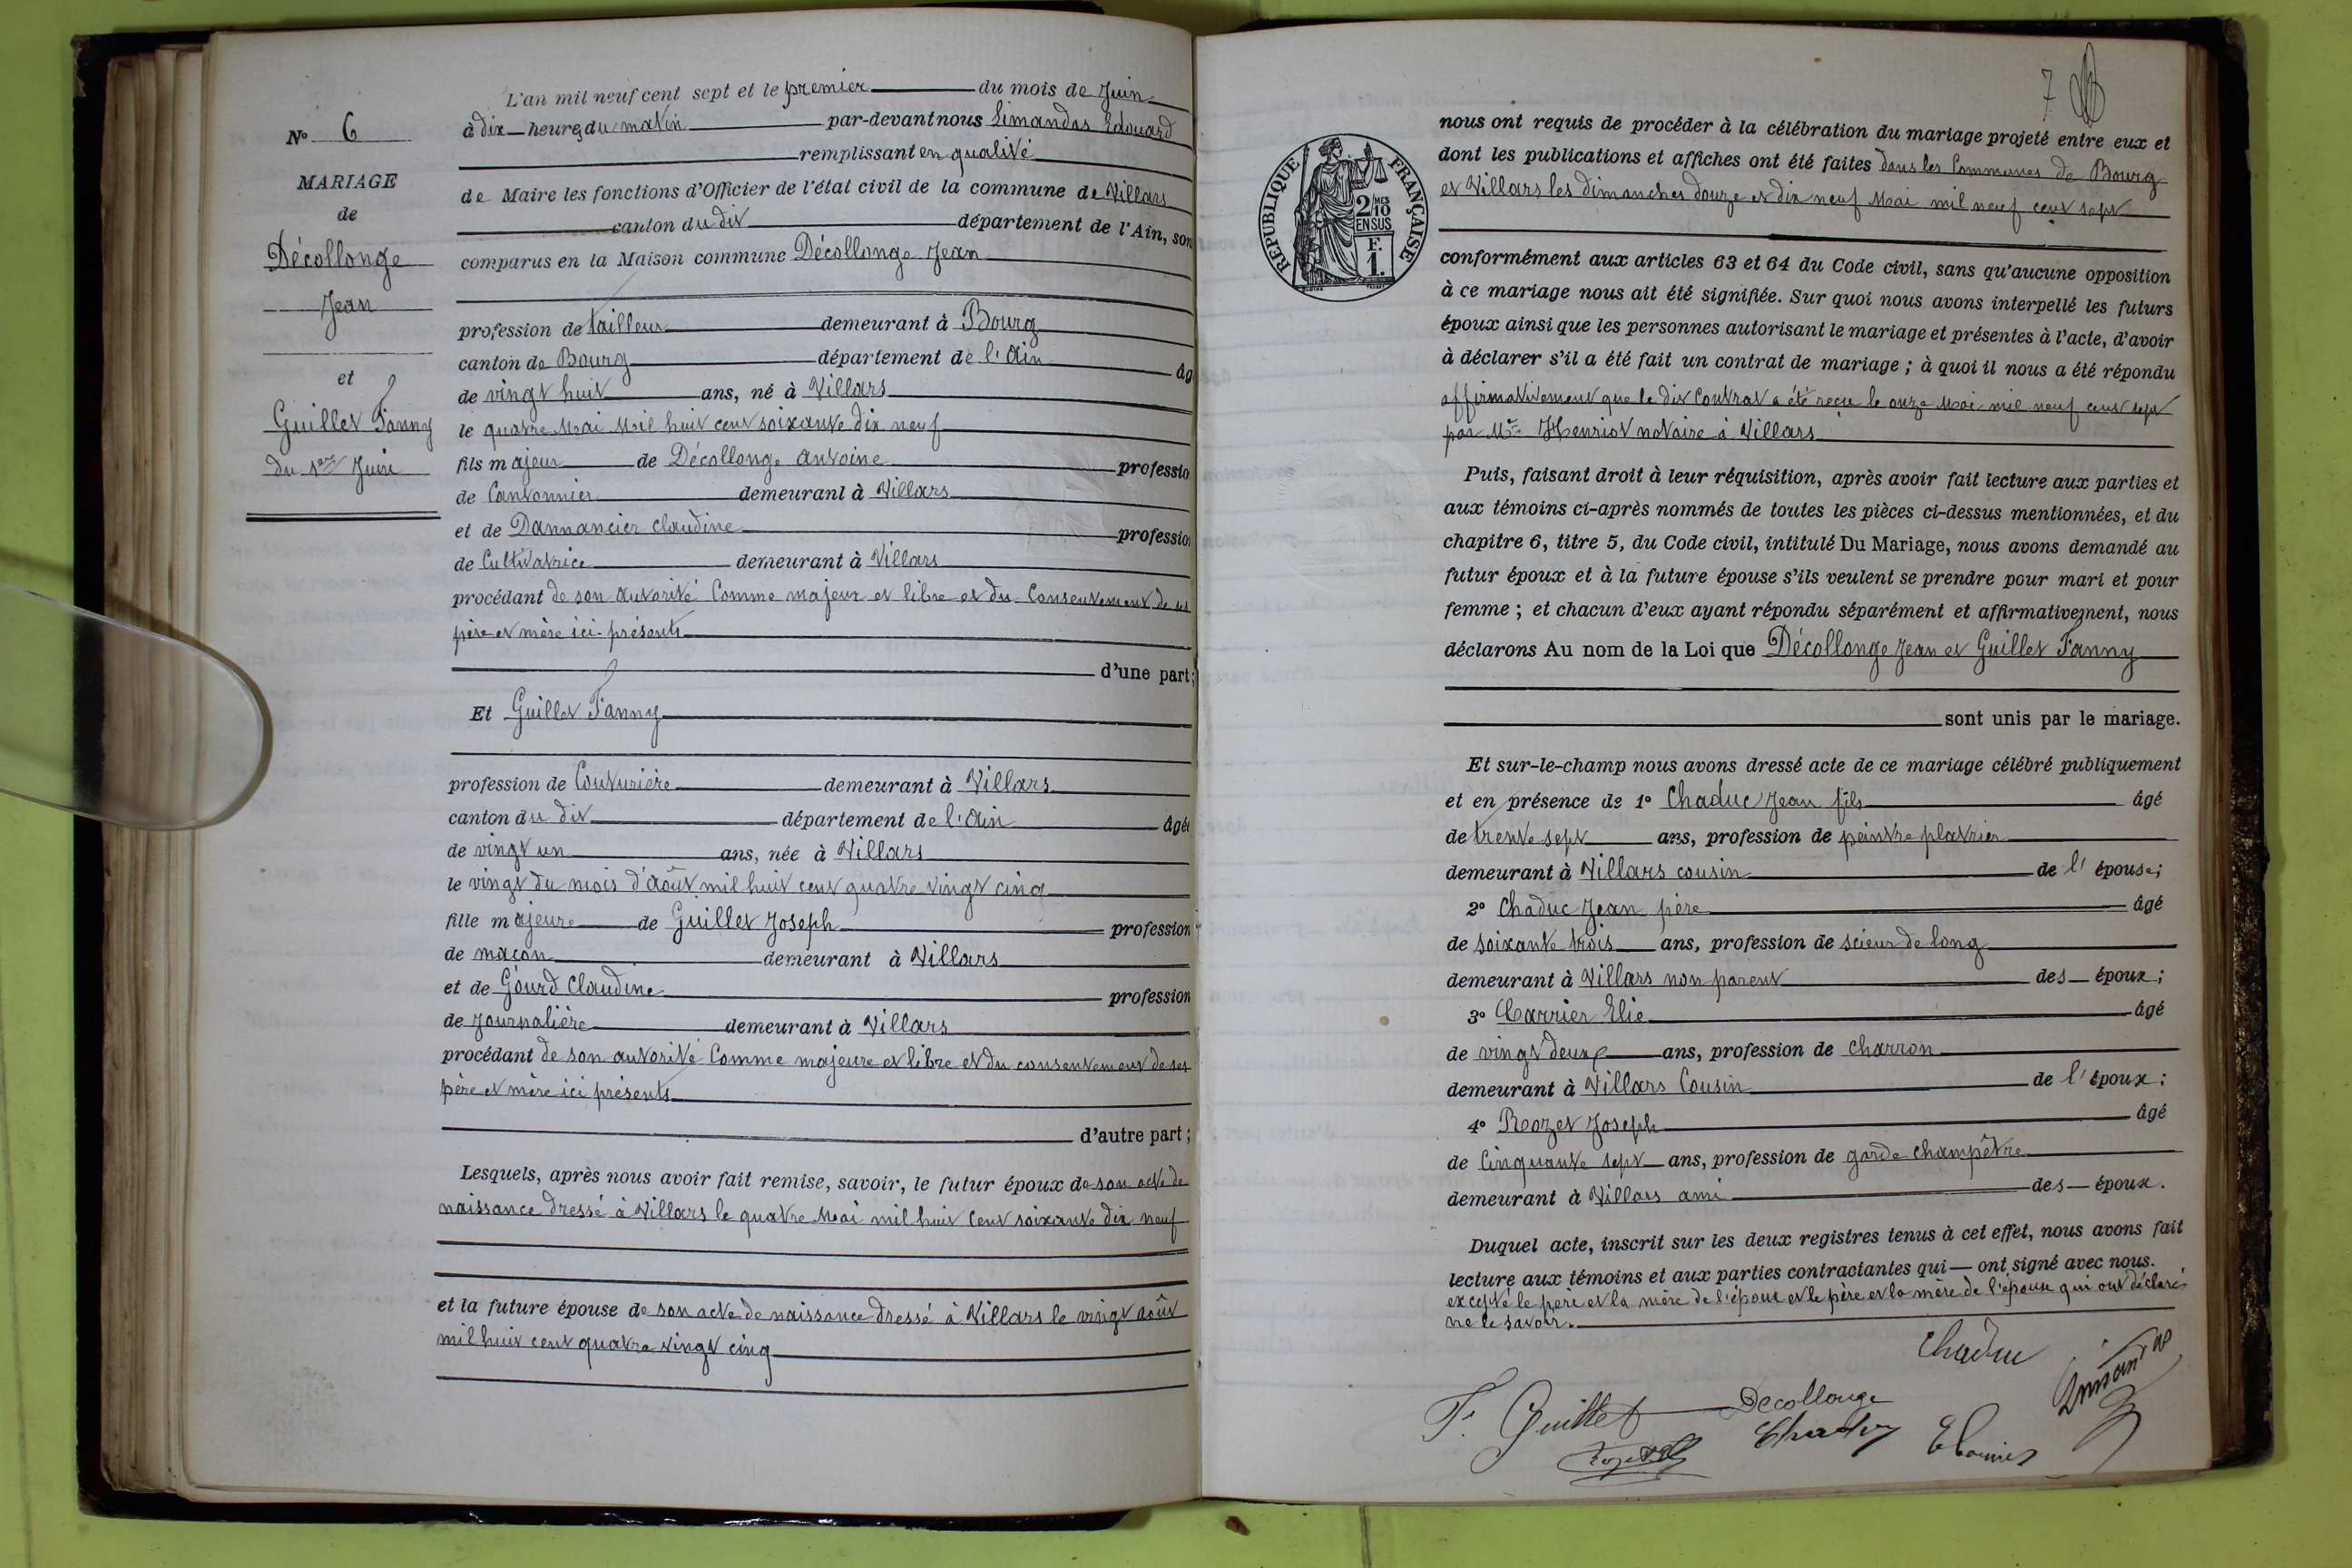 N° 6
MARIAGE
de
Décollonge
Jean
et
Guillet Fanny
du 1er Juin
L'an mil neuf cent sept et le premier du mois de Juin
à dix heures du matin par-devant nous Limandas Edouard
remplissant en qualité
de Maire les fonctions d'Officier de l'état civil de la commune de Villars
canton du dit département de l'Ain, son
comparus en la Maison commune Décollonge Jean
profession de tailleur demeurant à Bourg
canton de Bourg département de l'Ain âg
de vingt huit ans, né à Villars
le quatre Mai Mil huit cent soixante dix neuf
fils majeur de Décollonge Antoine professio
de Cantonnier demeurant à Villars
et de Dannancier Claudine profession
de Cultivatrice demeurant à Villars
procédant de son autorité Comme majeur et libre et du Consentement de ses
père et mère ici présents
d'une part;
Et Guillet Fanny
profession de Couturière demeurant à Villars
canton du dit département de l'Ain âgée
de vingt un ans, née à Villars
le vingt du mois d'Août mil huit cent quatre vingt cinq
fille majeure de Guillet Joseph profession
de maçon demeurant à Villars
et de Gourd Claudine profession
de Journalière demeurant à Villars
procédant de son autorité Comme majeure et libre et du consentement de ses
père et mère ici présents
d'autre part;
Lesquels, après nous avoir fait remise, savoir, le futur époux de son acte de
naissance dressé à Villars le quatre Mai mil huit cent soixante dix neuf
et la future épouse de son acte de naissance dressé à Villars le vingt août
mil huit cent quatre vingt cinq
7
RÉPUBLIQUE FRANÇAISE
2 MES
10
EN SUS
F.
1.
nous ont requis de procéder à la célébration du mariage projeté entre eux et
dont les publications et affiches ont été faites dans les Communes de Bourg
et Villars les dimanches douze et dix neuf Mai mil neuf cent sept
conformément aux articles 63 et 64 du Code civil, sans qu'aucune opposition
à ce mariage nous ait été signifiée. Sur quoi nous avons interpellé les futurs
époux ainsi que les personnes autorisant le mariage et présentes à l'acte, d'avoir
à déclarer s'il a été fait un contrat de mariage; à quoi il nous a été répondu
affirmativement que le dit Contrat a été reçu le onze Mai mil neuf cent sept
par Me Henriot notaire à Villars
Puis, faisant droit à leur réquisition, après avoir fait lecture aux parties et
aux témoins ci-après nommés de toutes les pièces ci-dessus mentionnées, et du
chapitre 6, titre 5, du Code civil, intitulé Du Mariage, nous avons demandé au
futur époux et à la future épouse s'ils veulent se prendre pour mari et pour
femme; et chacun d'eux ayant répondu séparément et affirmativement, nous
déclarons Au nom de la Loi que Décollonge Jean et Guillet Fanny
sont unis par le mariage.
Et sur-le-champ nous avons dressé acte de ce mariage célébré publiquement
et en présence de 1° Chaduc Jean fils âgé
de trente sept ans, profession de peintre platrier
demeurant à Villars cousin de l'épouse;
2° Chaduc Jean père âgé
de soixante trois ans, profession de scieur de long
demeurant à Villars non parent des époux;
3° Carrier Elie âgé
de vingt deux ans, profession de charron
demeurant à Villars Cousin de l'époux;
4° Rozet Joseph âgé
de Cinquante sept ans, profession de garde champêtre
demeurant à Villars ami des époux.
Duquel acte, inscrit sur les deux registres tenus à cet effet, nous avons fait
lecture aux témoins et aux parties contractantes qui ont signé avec nous.
excepté le père et la mère de l'époux et le père et la mère de l'épouse qui ont déclaré
ne le savoir.
Chaduc
Limandas
F. Guillet Decollonge
Rozet Chaduc E Carrier